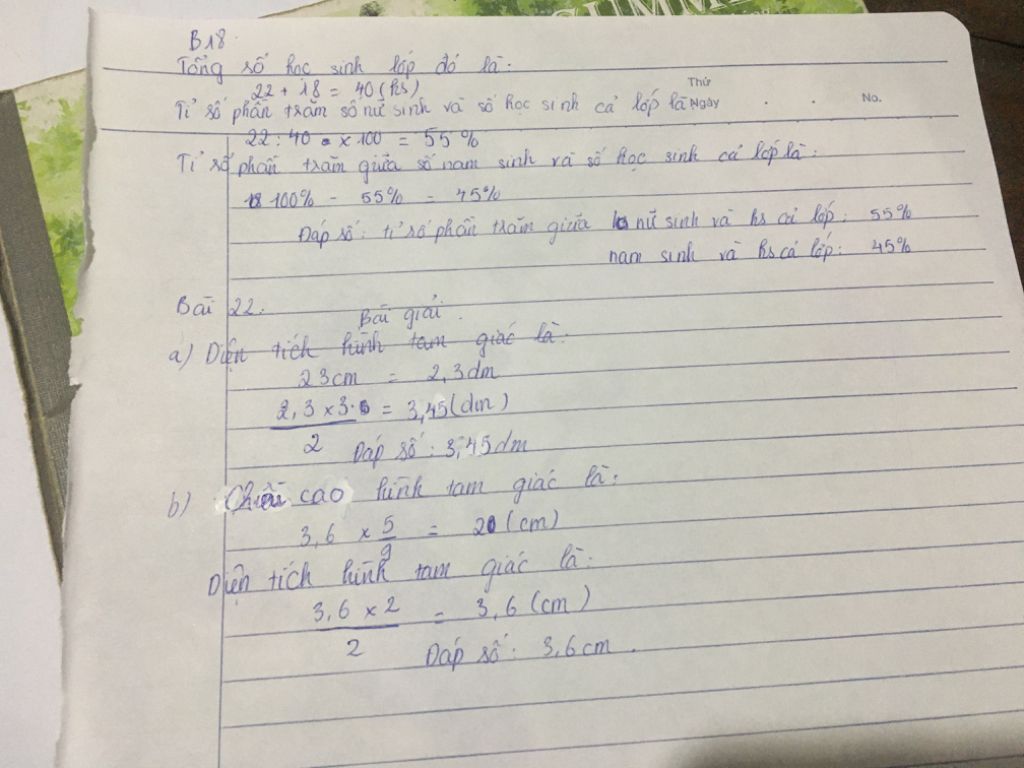 SUMM
B18
Tổng số học sinh lớp đó là:
22 + 18 = 40 (hs)
Thứ
Tỉ số phần trăm số nữ sinh và số học sinh cả lớp là
Ngày . . No.
22 : 40 x 100 = 55 %
Tỉ số phần trăm giữa số nam sinh và số học sinh cả lớp là:
100% - 55% = 45%
Đáp số: tỉ số phần trăm giữa nữ sinh và hs cả lớp: 55%
nam sinh và hs cả lớp: 45%
Bài 22:
Bài giải.
a) Diện tích hình tam giác là:
23cm = 2,3dm
2,3 x 3 = 3,45 (dm)
2
Đáp số: 3,45dm
b) Chiều cao hình tam giác là:
3,6 x 5 = 2 (cm)
9
Diện tích hình tam giác là:
3,6 x 2 = 3,6 (cm)
2
Đáp số: 3,6cm.